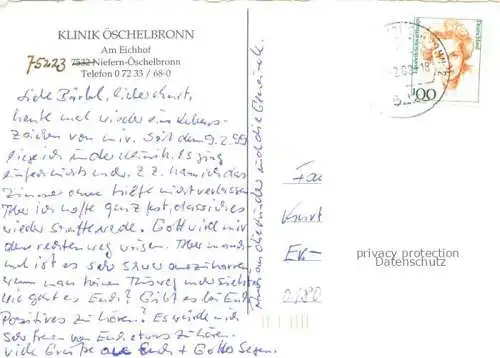 KLINIK ÖSCHELBRONN
Am Eichhof
75223 7532 Niefern-Öschelbronn
Telefon 0 72 33 / 68-0
Liebe Bärbel, lieber Kurt,
heute mal wieder ein Lebens-
zeichen von mir. Seit dem 9.2.99
liege ich in der Klinik. Es ging
einfach nicht mehr. Z.Z. kann ich das
Zimmer ohne Hilfe nicht verlassen.
Aber ich hoffe ganz fest, dass ich es
wieder schaffen werde. Gott wird mir
den rechten Weg zeigen. Aber manch-
mal ist es sehr schwer auszuharren,
wenn man keinen Ausweg mehr sieht.
Wie geht es Euch? Gibt es bei Euch
Positives zu hören? Es würde mich
sehr freuen von Euch etwas zu hören.
Viele Grüße an Euch + Gottes Segen.
auch an die Kinder und die Gemeinde.
Deutschland
100
Fa
Kurt
privacy protection
Datenschutz